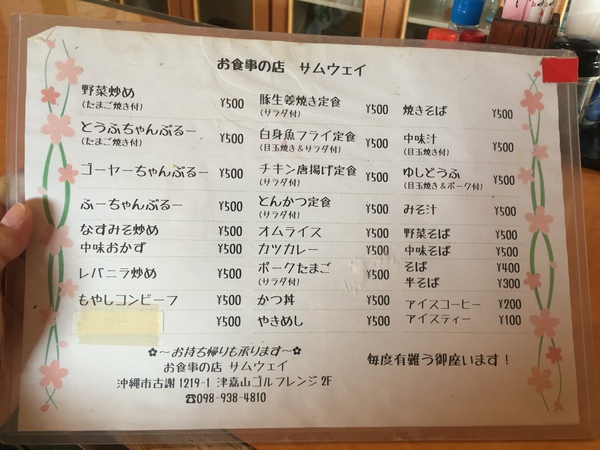 お食事の店 サムウェイ
野菜炒め ¥500
(たまご焼き付)
とうふちゃんぷるー ¥500
(たまご焼き付)
ゴーヤーちゃんぷるー ¥500
ふーちゃんぷるー ¥500
なすみそ炒め ¥500
中味おかず ¥500
レバニラ炒め ¥500
もやしコンビーフ ¥500
¥500
豚生姜焼き定食 ¥500
(サラダ付)
白身魚フライ定食 ¥500
(目玉焼き&サラダ付)
チキン唐揚げ定食 ¥500
(サラダ付)
とんかつ定食 ¥500
(サラダ付)
オムライス ¥500
カツカレー ¥500
ポークたまご ¥500
(サラダ付)
かつ丼 ¥500
やきめし ¥500
焼きそば ¥500
中味汁 ¥500
(目玉焼き付)
ゆしどうふ ¥500
(目玉焼き&ポーク付)
みそ汁 ¥500
野菜そば ¥500
中味そば ¥500
そば ¥400
半そば ¥300
アイスコーヒー ¥200
アイスティー ¥100
✿〜お持ち帰りも承ります〜✿
お食事の店 サムウェイ
沖縄市古謝1219-1 津嘉山ゴルフレンジ2F
☎098-938-4810
毎度有難う御座います!